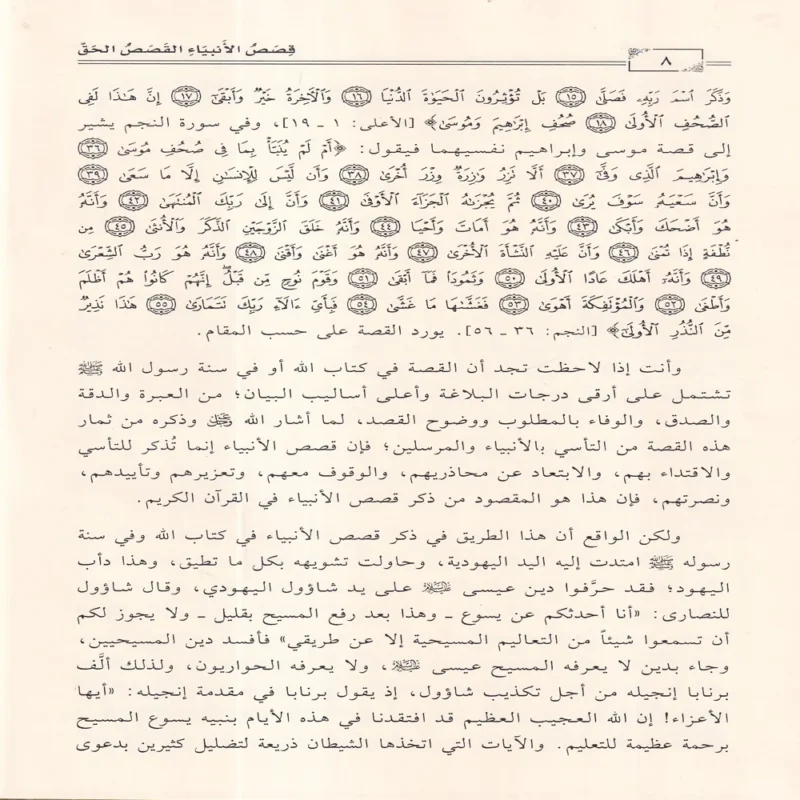 ٨
قِصَصُ الأنبيَاءِ القَصَصُ الحَقّ
وَذَكَرَ ٱسْمَ رَبِّهِۦ فَصَلَّىٰ ﴿١٥﴾ بَلْ تُؤْثِرُونَ ٱلْحَيَوٰةَ ٱلدُّنْيَا ﴿١٦﴾ وَٱلْأَخِرَةُ خَيْرٌ وَأَبْقَىٰٓ ﴿١٧﴾ إِنَّ هَـٰذَا لَفِى
ٱلصُّحُفِ ٱلْأُولَىٰ ﴿١٨﴾ صُحُفِ إِبْرَٰهِيمَ وَمُوسَىٰ﴾ [الأعلى: ١ ـ ١٩]، وفي سورة النجم يشير
إلى قصة موسى وإبراهيم نفسيهما فيقول: ﴿أَمْ لَمْ يُنَبَّأْ بِمَا فِى صُحُفِ مُوسَىٰ ﴿٣٦﴾
وَإِبْرَٰهِيمَ ٱلَّذِى وَفَّىٰٓ ﴿٣٧﴾ أَلَّا تَزِرُ وَازِرَةٌ وِزْرَ أُخْرَىٰ ﴿٣٨﴾ وَأَن لَّيْسَ لِلْإِنسَـٰنِ إِلَّا مَا سَعَىٰ ﴿٣٩﴾
وَأَنَّ سَعْيَهُۥ سَوْفَ يُرَىٰ ﴿٤٠﴾ ثُمَّ يُجْزَىٰهُ ٱلْجَزَآءَ ٱلْأَوْفَىٰ ﴿٤١﴾ وَأَنَّ إِلَىٰ رَبِّكَ ٱلْمُنتَهَىٰ ﴿٤٢﴾ وَأَنَّهُۥ
هُوَ أَضْحَكَ وَأَبْكَىٰ ﴿٤٣﴾ وَأَنَّهُۥ هُوَ أَمَاتَ وَأَحْيَا ﴿٤٤﴾ وَأَنَّهُۥ خَلَقَ ٱلزَّوْجَيْنِ ٱلذَّكَرَ وَٱلْأُنثَىٰ ﴿٤٥﴾ مِن
نُّطْفَةٍ إِذَا تُمْنَىٰ ﴿٤٦﴾ وَأَنَّ عَلَيْهِ ٱلنَّشْأَةَ ٱلْأُخْرَىٰ ﴿٤٧﴾ وَأَنَّهُۥ هُوَ أَغْنَىٰ وَأَقْنَىٰ ﴿٤٨﴾ وَأَنَّهُۥ هُوَ رَبُّ ٱلشِّعْرَىٰ
﴿٤٩﴾ وَأَنَّهُۥٓ أَهْلَكَ عَادًا ٱلْأُولَىٰ ﴿٥٠﴾ وَثَمُودَا۟ فَمَآ أَبْقَىٰ ﴿٥١﴾ وَقَوْمَ نُوحٍ مِّن قَبْلُ إِنَّهُمْ كَانُوا۟ هُمْ أَظْلَمَ
وَأَطْغَىٰ ﴿٥٢﴾ وَٱلْمُؤْتَفِكَةَ أَهْوَىٰ ﴿٥٣﴾ فَغَشَّىٰهَا مَا غَشَّىٰ ﴿٥٤﴾ فَبِأَىِّ ءَالَآءِ رَبِّكَ تَتَمَارَىٰ ﴿٥٥﴾ هَـٰذَا نَذِيرٌ
مِّنَ ٱلنُّذُرِ ٱلْأُولَىٰٓ﴾ [النجم: ٣٦ ـ ٥٦]. يورد القصة على حسب المقام.
وأنت إذا لاحظت تجد أن القصة في كتاب الله أو في سنة رسول الله ﷺ
تشتمل على أرقى درجات البلاغة وأعلى أساليب البيان؛ من العبرة والدقة
والصدق، والوفاء بالمطلوب ووضوح القصد، لما أشار الله ﷻ وذكره من ثمار
هذه القصة من التأسي بالأنبياء والمرسلين؛ فإن قصص الأنبياء إنما تُذكر للتأسي
والاقتداء بهم، والابتعاد عن محاذريهم، والوقوف معهم، وتعزيرهم وتأييدهم،
ونصرتهم، فإن هذا هو المقصود من ذكر قصص الأنبياء في القرآن الكريم.
ولكن الواقع أن هذا الطريق في ذكر قصص الأنبياء في كتاب الله وفي سنة
رسوله ﷺ امتدت إليه اليد اليهودية، وحاولت تشويهه بكل ما تطيق، وهذا دأب
اليهود؛ فقد حرَّفوا دين عيسى عليه السلام على يد شاؤول اليهودي، وقال شاؤول
للنصارى: «أنا أحدثكم عن يسوع ـ وهذا بعد رفع المسيح بقليل ـ ولا يجوز لكم
أن تسمعوا شيئاً من التعاليم المسيحية إلا عن طريقي» فأفسد دين المسيحيين،
وجاء بدين لا يعرفه المسيح عيسى عليه السلام، ولا يعرفه الحواريون، ولذلك ألَّف
برنابا إنجيله من أجل تكذيب شاؤول، إذ يقول برنابا في مقدمة إنجيله: «أيها
الأعزاء! إن الله العجيب العظيم قد افتقدنا في هذه الأيام بنبيه يسوع المسيح
برحمة عظيمة للتعليم. والآيات التي اتخذها الشيطان ذريعة لتضليل كثيرين بدعوى